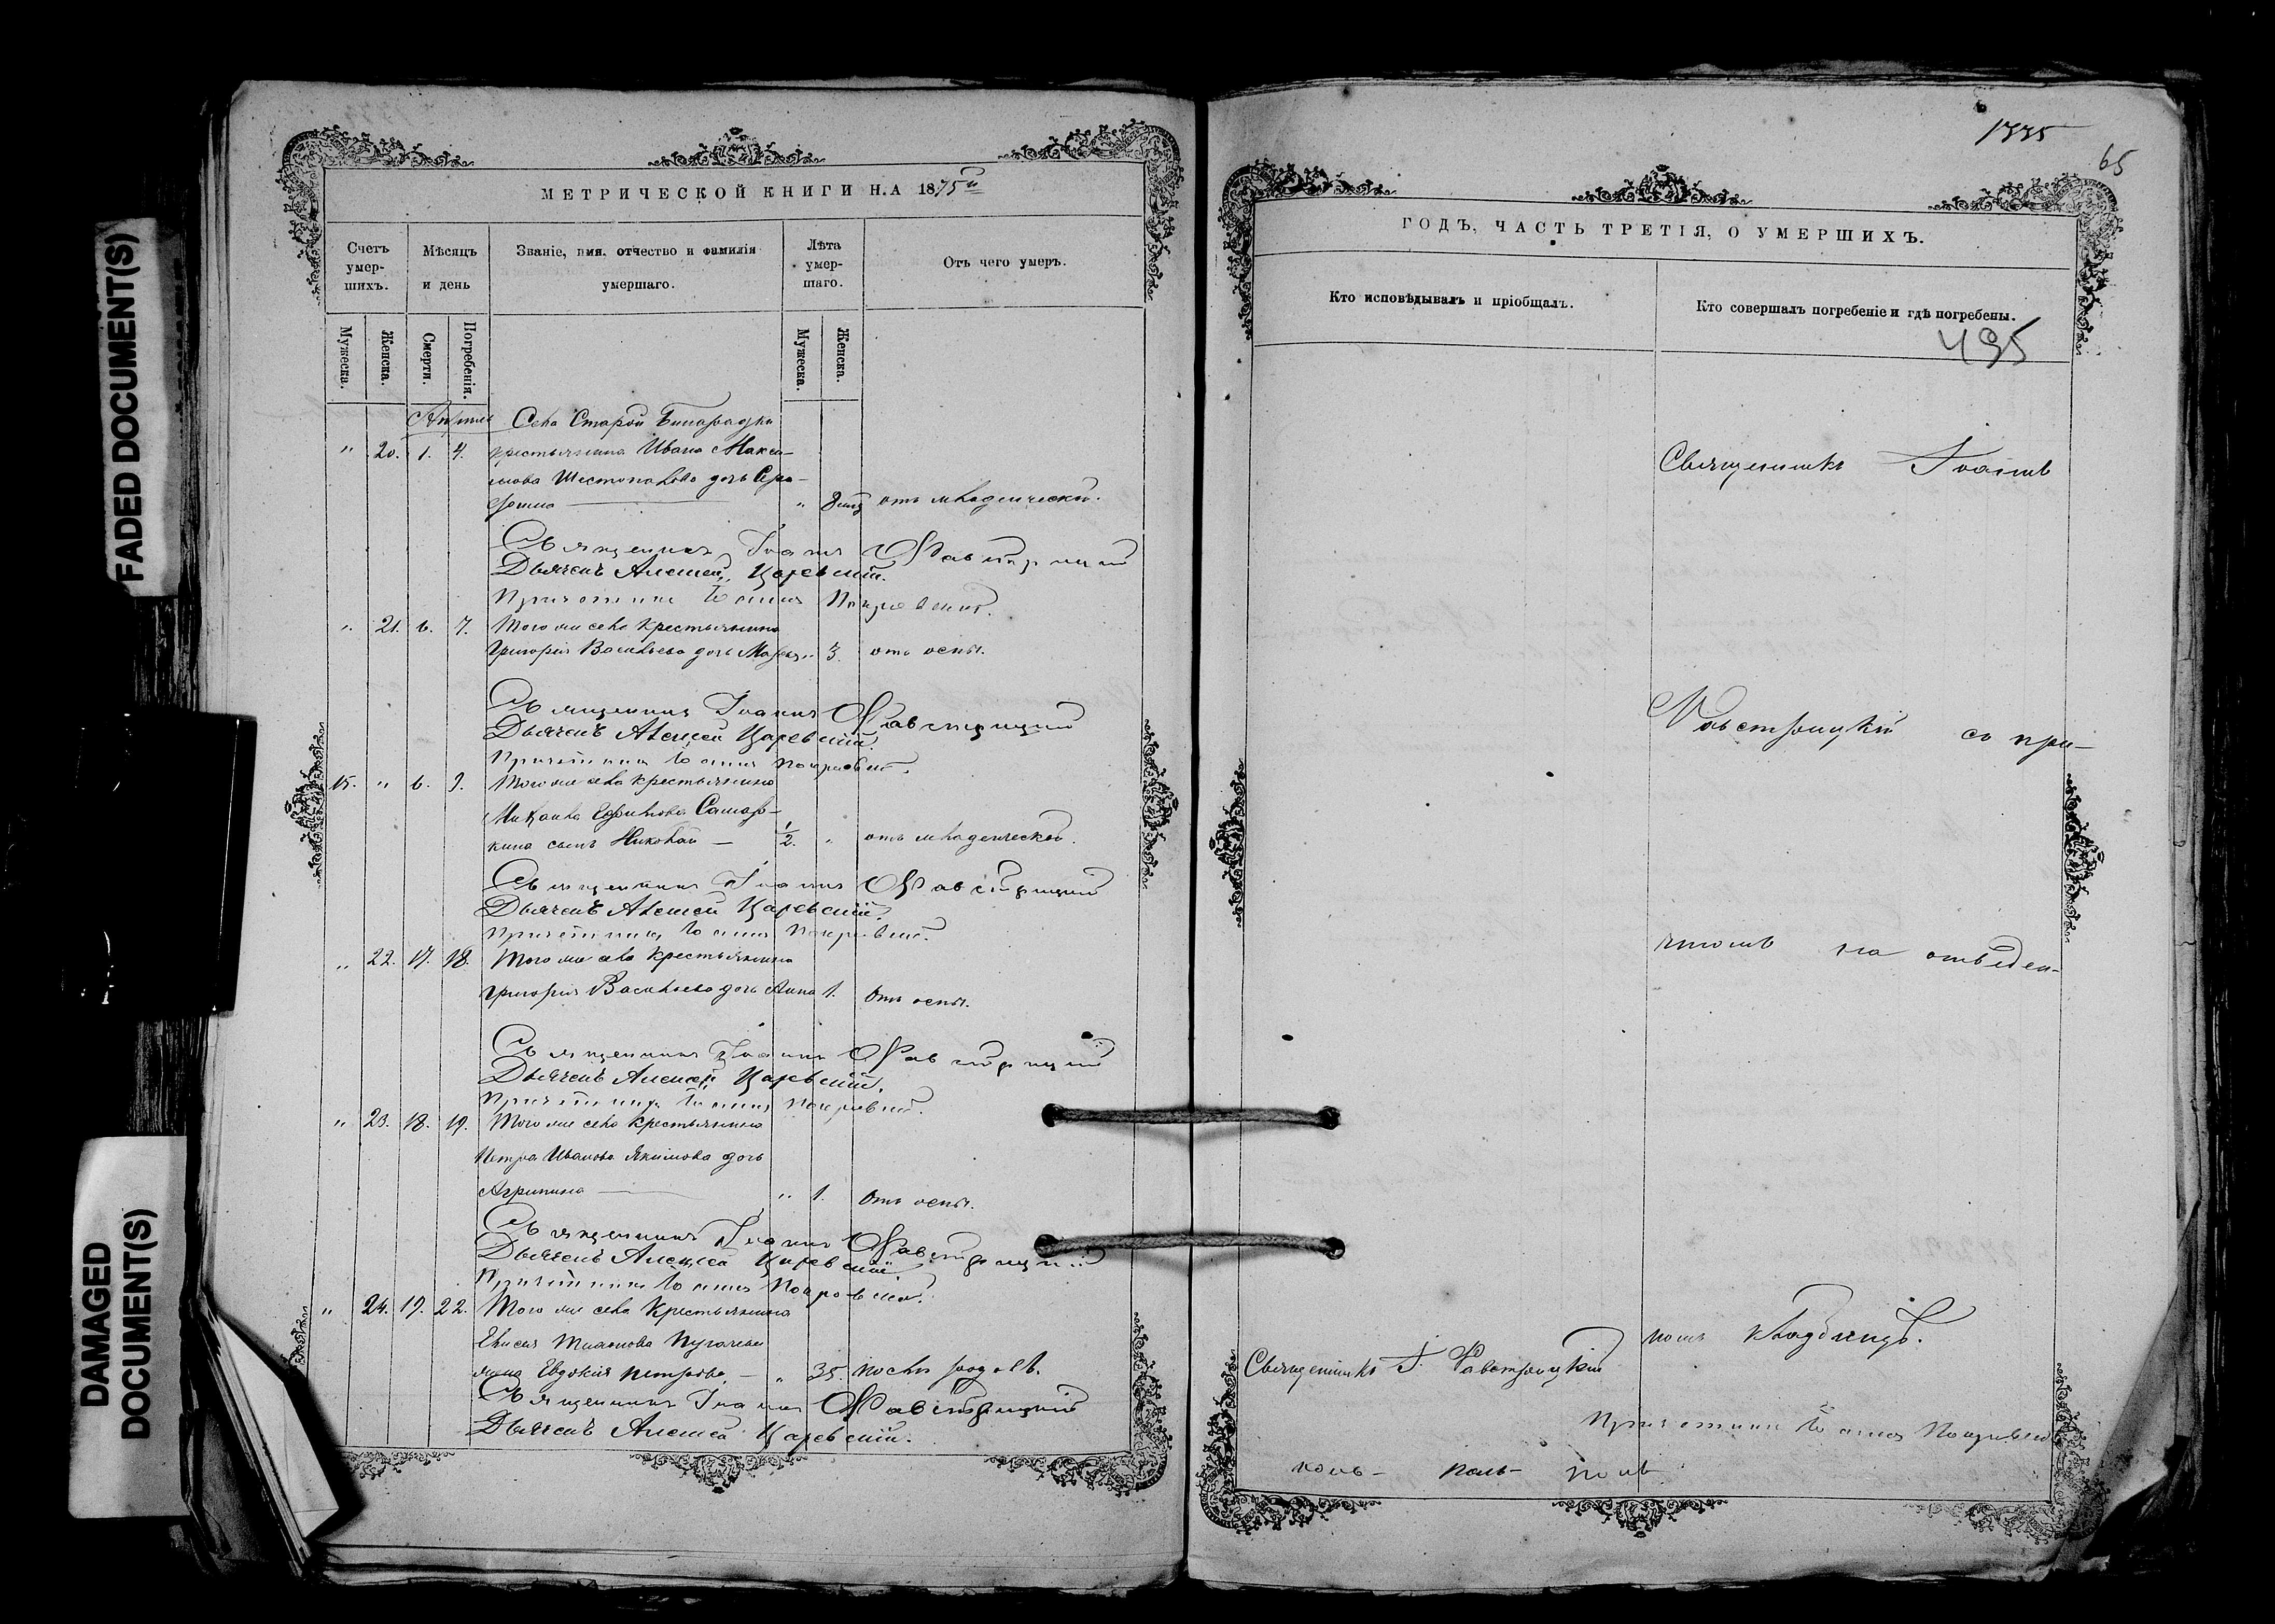 FADED DOCUMENT(S)
DAMAGED
DOCUMENT(S)
МЕТРИЧЕСКОЙ КНИГИ НА 1875й
Счетъ умершихъ.
Мѣсяцъ и день
Званіе, имя, отчество и фамилія умершаго.
Лѣта умершаго.
Отъ чего умеръ.
Мужеска.
Женска.
Смерти.
Погребенія.
Мужеска.
Женска.
Апрель
Села Старой Бинарадки
" 20. 1. 4. крестьянина Ивана Макси-
мова Шестопалова дочь Сера-
фима — " отъ младенческой.
Священникъ Іоаннъ Фавстрицкий
Дьячекъ Алексей Царевскій.
Причетникъ Іоаннъ Покровскій.
" 21. 6. 7. Того же села крестьянина
Григорія Васильева дочь Марья " 3. отъ оспы.
Священникъ Іоаннъ Фавстрицкий
Дьячекъ Алексей Царевскій.
Причетникъ Іоаннъ Покровскій.
15. " 6. 9. Того же села крестьянина
Михаила Ефимова Самар-
кина сынъ Николай — 1/2. " отъ младенческой.
Священникъ Іоаннъ Фавстрицкий
Дьячекъ Алексей Царевскій.
Причетникъ Іоаннъ Покровскій.
" 22. 17. 18. Того же села крестьянина
Григорія Васильева дочь Анна 1. Отъ оспы.
Священникъ Іоаннъ Фавстрицкий
Дьячекъ Алексей Царевскій.
Причетникъ Іоаннъ Покровскій.
" 23. 18. 19. Того же села крестьянина
Петра Иванова Якимова дочь
Агрипина — " 1. Отъ оспы.
Священникъ Іоаннъ Фавстрицкий
Дьячекъ Алексей Царевскій.
Причетникъ Іоаннъ Покровскій.
" 24. 19. 22. Того же села крестьянина
Елисея
жена Евдокия Петрова — " 35. после родовъ.
Священникъ Іоаннъ Фавстрицкий
Дьячекъ Алексей Царевскій.
1335
65
ГОДЪ, ЧАСТЬ ТРЕТІЯ, О УМЕРШИХЪ.
Кто исповѣдывалъ и пріобщалъ.
Кто совершалъ погребеніе и гдѣ погребены.
495
Священникъ Іоаннъ
Фавстрицкій съ при-
чтомъ на отведен-
номъ кладбищѣ.
Священникъ І. Фавстрицкій
Причетникъ Іоаннъ Покровскій